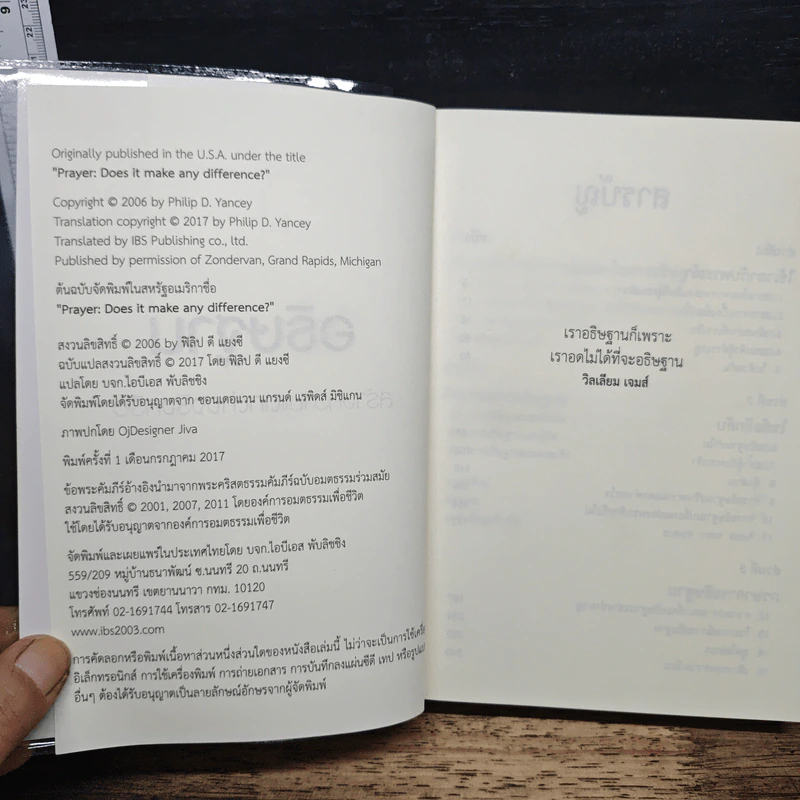 Originally published in the U.S.A. under the title
"Prayer: Does it make any difference?"
Copyright © 2006 by Philip D. Yancey
Translation copyright © 2017 by Philip D. Yancey
Translated by IBS Publishing co., ltd.
Published by permission of Zondervan, Grand Rapids, Michigan
ต้นฉบับจัดพิมพ์ในสหรัฐอเมริกาชื่อ
"Prayer: Does it make any difference?"
สงวนลิขสิทธิ์ © 2006 by ฟิลิป ดี แยงซี
ฉบับแปลสงวนลิขสิทธิ์ © 2017 โดย ฟิลิป ดี แยงซี
แปลโดย บจก.ไอบีเอส พับลิชชิง
จัดพิมพ์โดยได้รับอนุญาตจาก ซอนเดอแวน แกรนด์ แรพิดส์ มิชิแกน
ภาพปกโดย OjDesigner Jiva
พิมพ์ครั้งที่ 1 เดือนกรกฎาคม 2017
ข้อพระคัมภีร์อ้างอิงนำมาจากพระคริสตธรรมคัมภีร์ฉบับอมตธรรมร่วมสมัย
สงวนลิขสิทธิ์ © 2001, 2007, 2011 โดยองค์การอมตธรรมเพื่อชีวิต
ใช้โดยได้รับอนุญาตจากองค์การอมตธรรมเพื่อชีวิต
จัดพิมพ์และเผยแพร่ในประเทศไทยโดย บจก.ไอบีเอส พับลิชชิง
559/209 หมู่บ้านธนาพัฒน์ ซ.นนทรี 20 ถ.นนทรี
แขวงช่องนนทรี เขตยานนาวา กทม. 10120
โทรศัพท์ 02-1691744 โทรสาร 02-1691747
www.ibs2003.com
การคัดลอกหรือพิมพ์เนื้อหาส่วนหนึ่งส่วนใดของหนังสือเล่มนี้ ไม่ว่าจะเป็นการใช้
อิเล็กทรอนิกส์ การใช้เครื่องพิมพ์ การถ่ายเอกสาร การบันทึกลงแผ่นซีดี เทป หรือ
อื่นๆ ต้องได้รับอนุญาตเป็นลายลักษณ์อักษรจากผู้จัดพิมพ์
เราอธิษฐานก็เพราะ
เราอดไม่ได้ที่จะอธิษฐาน
วิลเลียม เจมส์